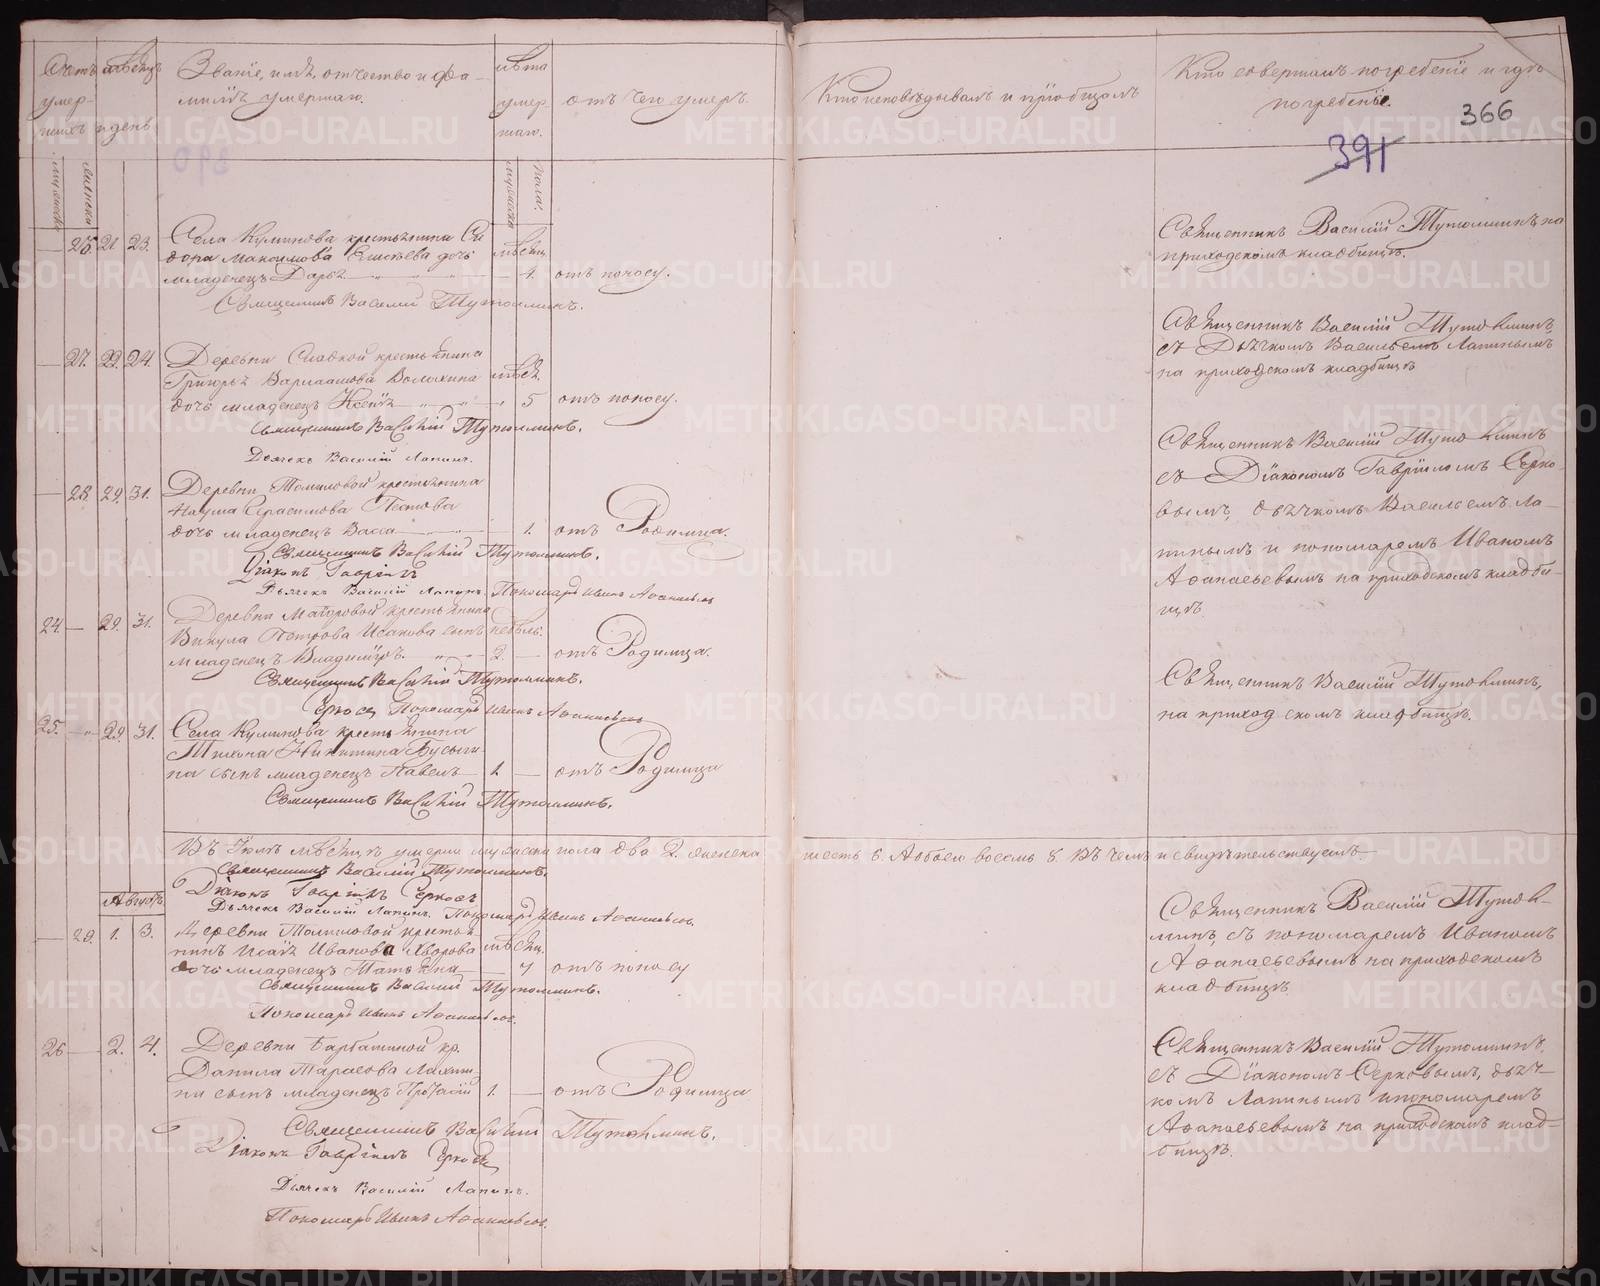 Счетъ умер-
шихъ
мѣсяцъ
и день
Званіе, имя, отчество и фа-
милія умершаго.
лѣта
умер-
шаго.
отъ чего умеръ.
Кто исповѣдывалъ и пріобщалъ
Кто совершалъ погребеніе и гдѣ
погребены.
366
391
мужеска
женска
мужеска
пола.
21. 23.
Села Куликова крестьянина Си-
дора Максимова Елисѣева дочь
младенецъ Дарья
мѣсяц.
1. отъ поносу.
Священникъ Василій Тутолминъ.
Священникъ Василій Тутолминъ на
приходскомъ кладбищѣ.
27. 22. 24.
Деревни Сладкой крестьянина
Григорья Варлаамова Волохина
дочь младенецъ Ксенія
мѣся.
5 отъ поносу.
Священникъ Василій Тутолминъ.
Дьячекъ Василій Лапинъ.
Священникъ Василій Тутолминъ,
съ Дьячкомъ Васильемъ Лапинымъ
на приходскомъ кладбищѣ
28. 29. 31.
Деревни Томиловой крестьянина
Наума Герасимова
дочь младенецъ Васса
1. отъ Родимца.
Священникъ Василій Тутолминъ.
Діаконъ Гавріилъ
Дьячекъ Василій Лапинъ. Пономарь Иванъ Аѳанасьевъ
Священникъ Василій Тутолминъ
съ Діакономъ Гавріиломъ Серко-
вымъ, дьячкомъ Васильемъ Ла-
пинымъ и пономаремъ Иваномъ
Аѳанасьевымъ на приходскомъ кладби-
щѣ.
24. 29. 31.
Деревни Мауровой крестьянина
Викула Петрова Исакова сынъ
младенецъ Владиміръ.
недѣль.
2. отъ Родимца.
Священникъ Василій Тутолминъ.
Пономарь Иванъ Аѳанасьевъ
Священникъ Василій Тутолминъ,
на приходскомъ кладбищѣ.
25. 29. 31.
Села Куликова крестьянина
Тихона Никитина Бусыги-
на сынъ младенецъ Павелъ
1. отъ Родимца
Священникъ Василій Тутолминъ.
Въ Іюлѣ мѣсяцѣ умерли мужеска пола два 2. женска шесть 6. А обоего восемь 8. Въ чемъ и свидѣтельствуемъ.
Священникъ Василій Тутолминъ.
Діаконъ Гавріилъ Серковъ
Дьячекъ Василій Лапинъ. Пономарь Иванъ Аѳанасьевъ.
Августъ.
29. 1. 3.
Деревни Томиловой крестья-
нина Исаія Иванова Яворова
дочь младенецъ Татьяна
мѣсяц.
7 отъ поносу
Священникъ Василій Тутолминъ.
Пономарь Иванъ Аѳанасьевъ.
Священникъ Василій Тутол-
минъ, съ пономаремъ Иваномъ
Аѳанасьевымъ на приходскомъ
кладбищѣ.
26 2. 4.
Деревни Барбашиной кр.
Данила Тарасова Лахти-
на сынъ младенецъ Протасій
1. отъ Родимца
Священникъ Василій Тутолминъ.
Діаконъ Гавріилъ Серковъ
Дьячекъ Василій Лапинъ.
Пономарь Иванъ Аѳанасьевъ.
Священникъ Василій Тутолминъ,
съ Діакономъ Серковымъ, дьяч-
комъ Лапинымъ и пономаремъ
Аѳанасьевымъ на приходскомъ клад-
бищѣ.
METRIKI.GASO-URAL.RU